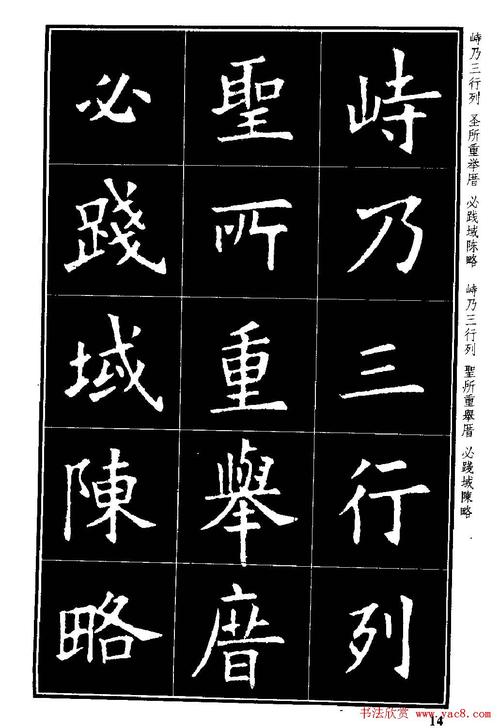 峙乃三行列
聖所重舉厝
必踐域陳略
峙乃三行列 圣所重举厝 必践域陈略 峙乃三行列 聖所重舉厝 必踐域陳略
14
书法欣赏 www.yac8.com